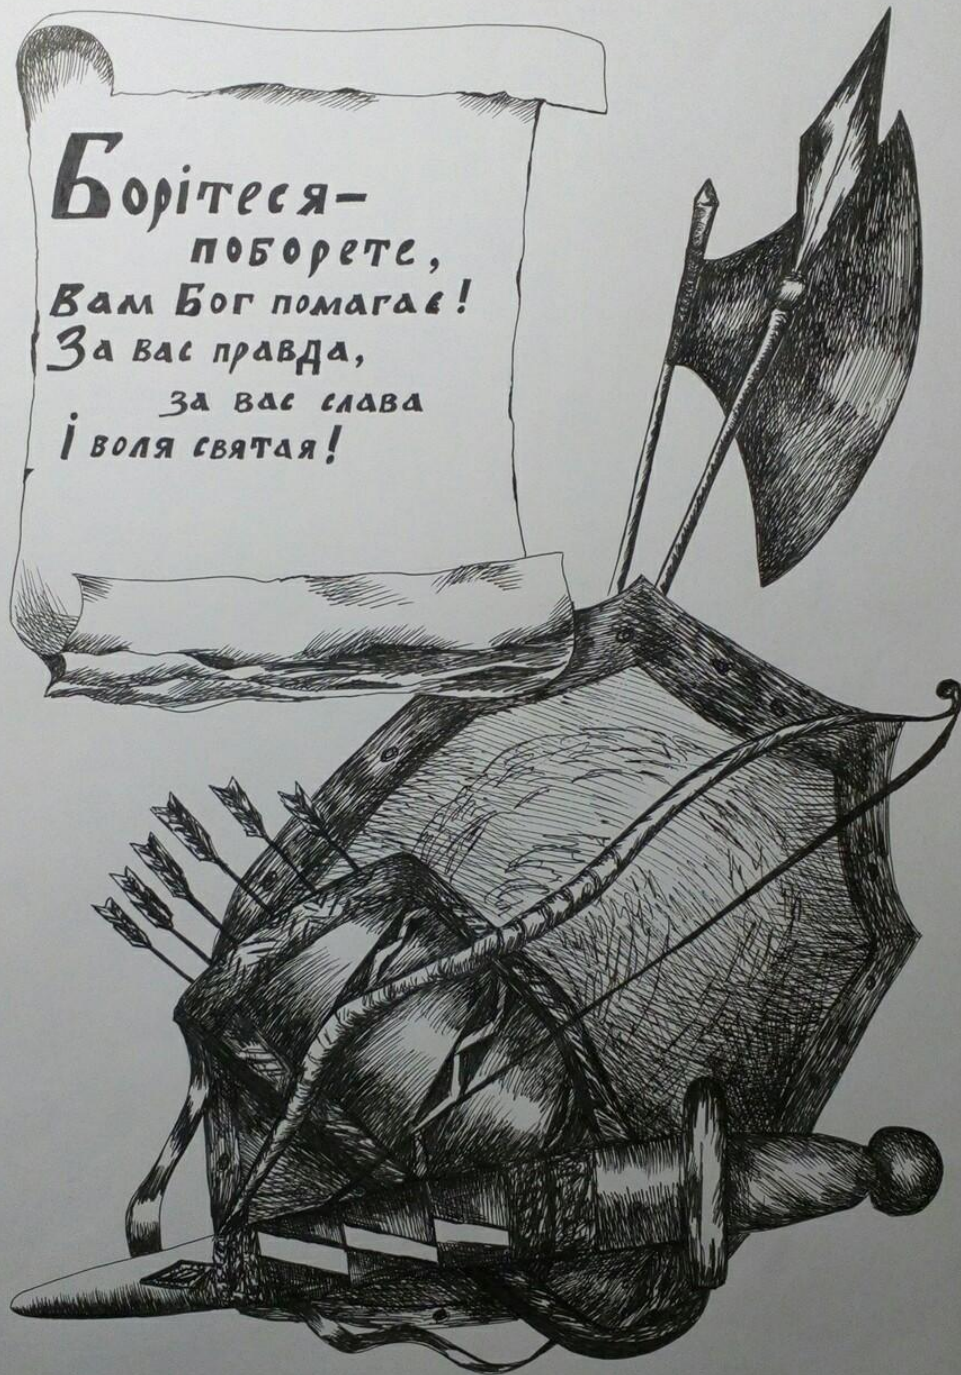 Борітеся–
поборете,
Вам Бог помагає!
За вас правда,
за вас слава
і воля святая!